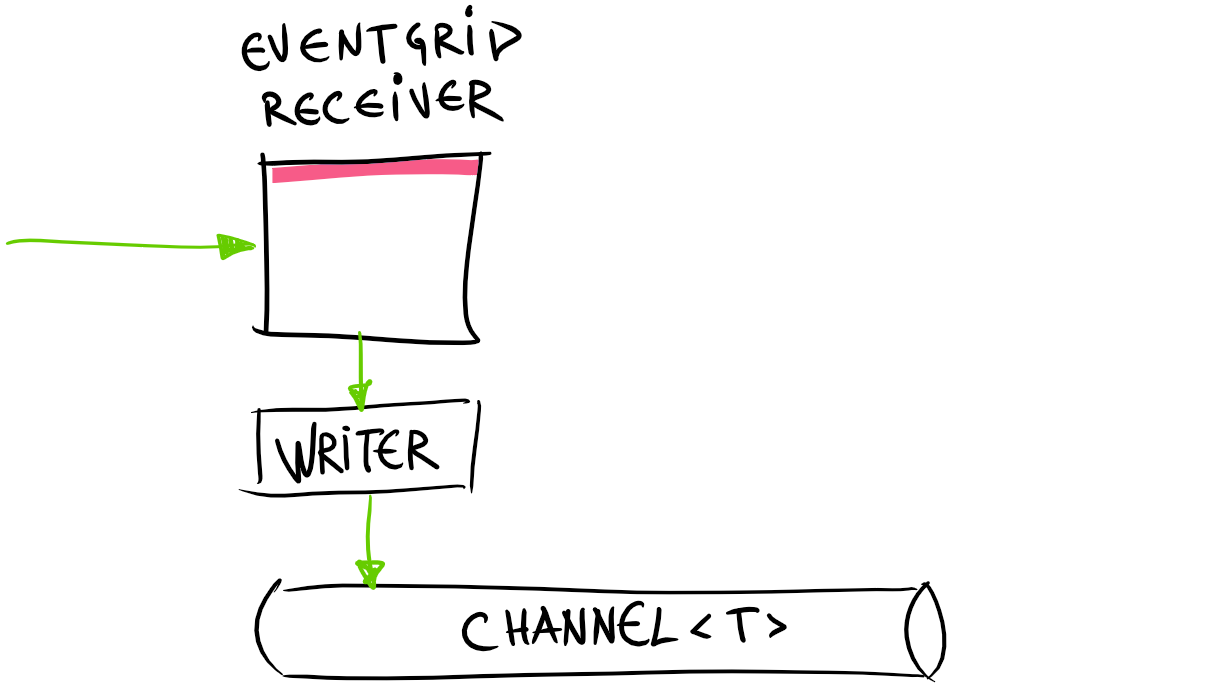 EVENTGRID
RECEIVER
WRITER
CHANNEL<T>